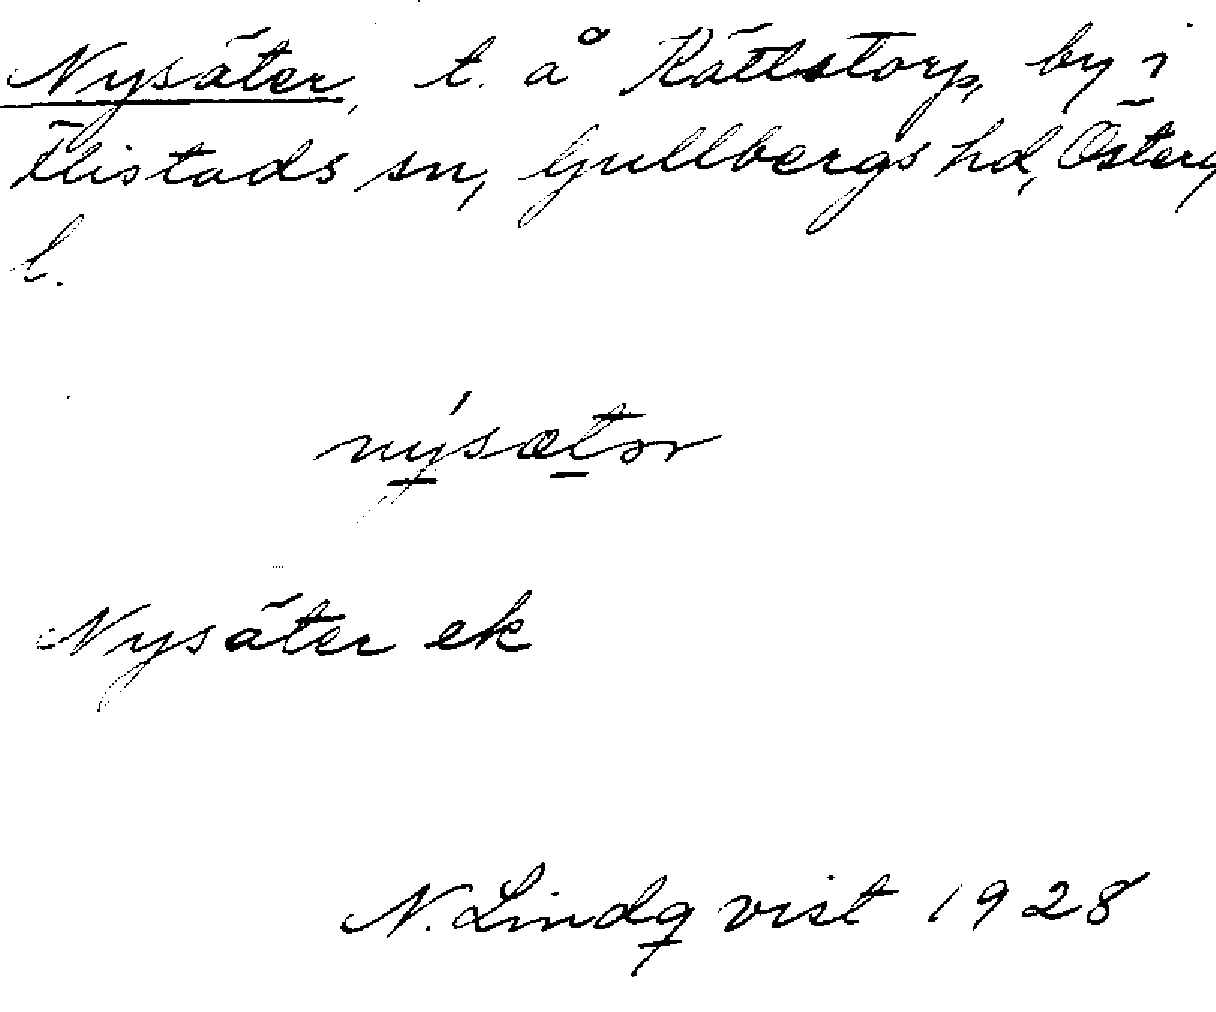 Nysäter, t. å Rättlstorp, by i
Flistads sn, Gullbergs hd, Österg
l.
nýsætor
Nysäter ek
N. Lindqvist 1928